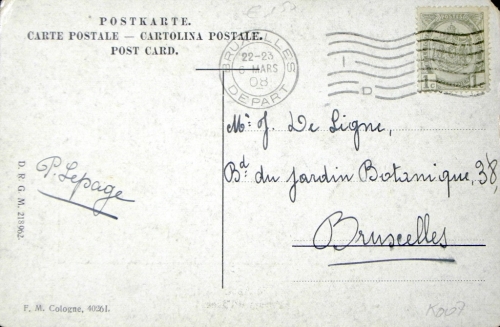 POSTKARTE.
CARTE POSTALE — CARTOLINA POSTALE.
POST CARD.
BRUXELLES
22-23
6 MARS
08
DEPART
1
D
Mr. J. De Ligne,
Bd. du Jardin Botanique, 38,
Bruxelles
P. Lepage
D. R. G. M. 218962.
F. M. Cologne, 40261.
K007